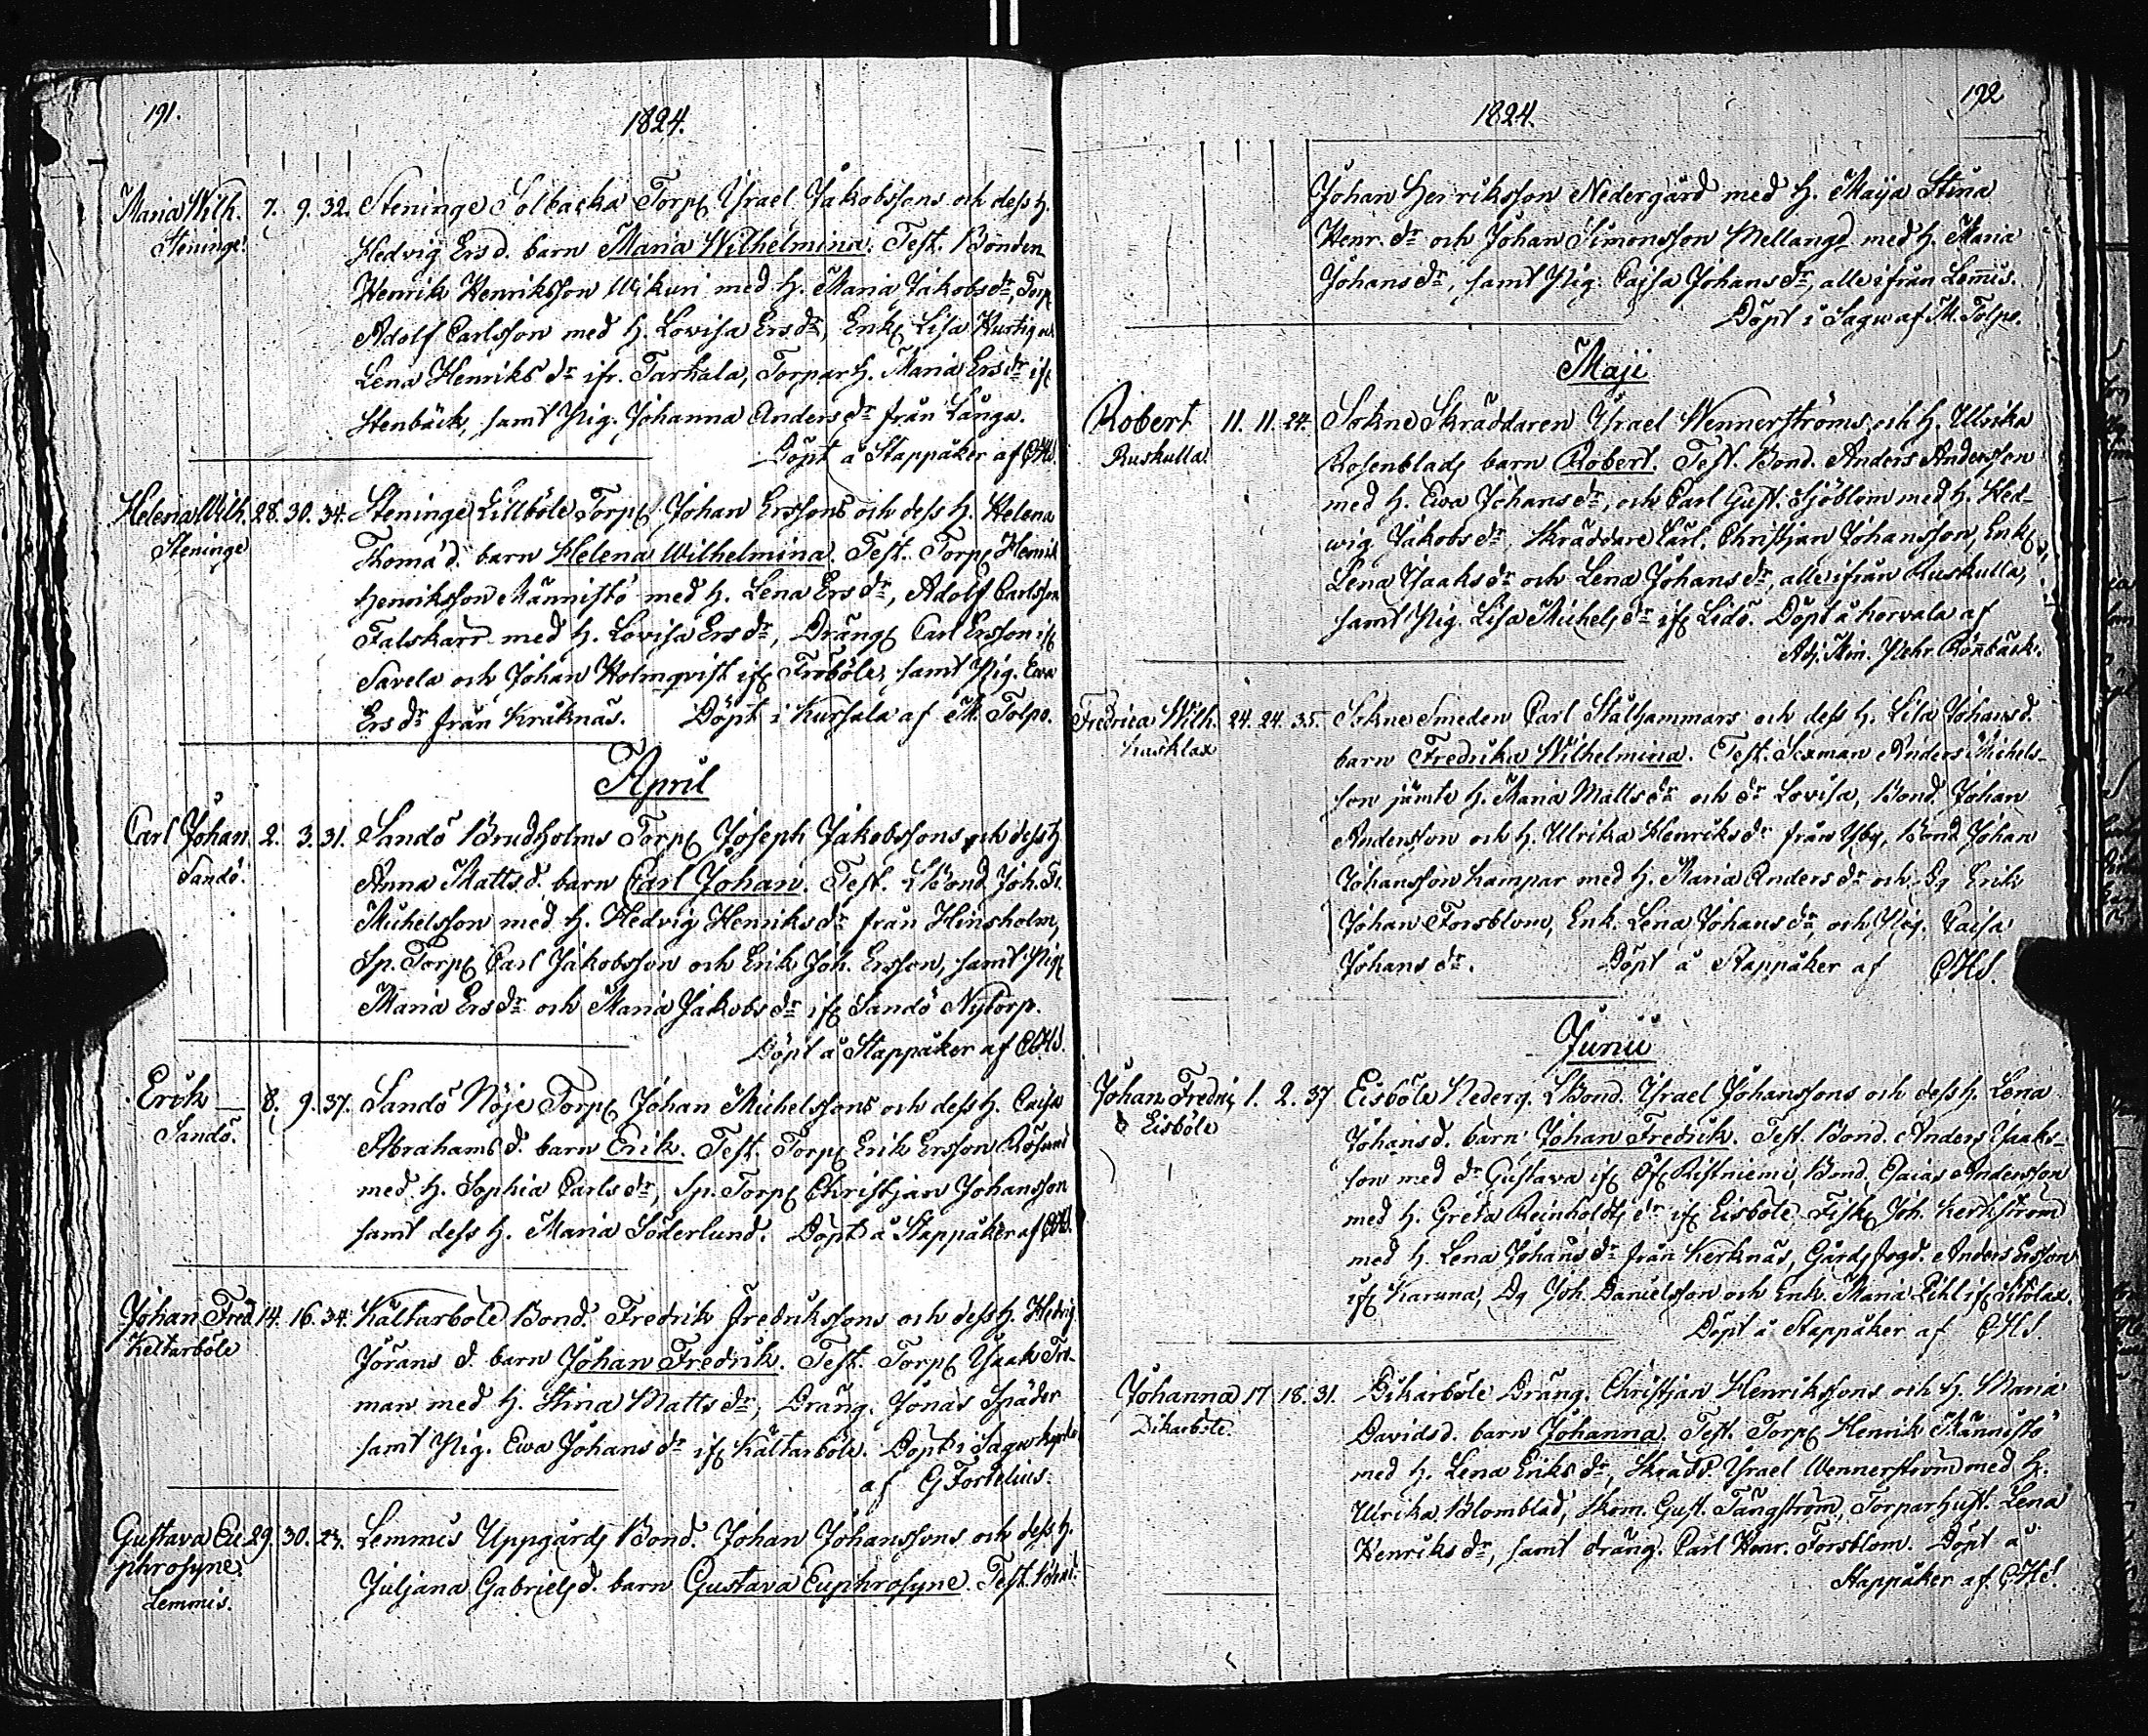 191.
1824.
Maria Wilh. 7. 9. 32. Steninge Solbacka Torp. Israel Jakobssons och dess h.
Steninge. Hedvig Ersd. barn Maria Wilhelmina. Test. Bonden
Henrik Henriksson Wikuri med h. Maria Jakobs dr, Torp
Adolf Carlsson med h. Lovisa Ers dr, Enk. Lisa Hurtig
Lena Henriks dr ifr. Tarkala, Torpar h. Maria Ers dr if
Stenbäck, samt Pig. Johanna Anders dr från Långa.
Döpt å Stappåker af CHS.
Helena Wilh. 28. 30. 34. Steninge Lillböle Torp. Johan Erssons och dess h. Helena
Steninge Thoma d. barn Helena Wilhelmina. Test. Torp. Henrik
Henriksson Männistö med h. Lena Ers dr, Adolf Carlsson
Falskärr med h. Lovisa Ers dr, Dräng. Carl Ersson if
Savela och Johan Holmqvist if Froböle, samt Pig. Ewa
Ers dr från Kråknäs. Döpt i Kursala af M. Tolpo.
April
Carl Johan 2. 3. 31. Sandö Brudholms Torp. Joseph Jakobssons och dess h
Sandö. Anna Matts d. barn Carl Johan. Test. LBond. Joh. Fr.
Michelsson med h. Hedvig Henriks dr från Hinsholm,
Sp. Torp. Carl Jakobsson och Erik Joh. Ersson, samt Pig
Maria Ers dr och Maria Jakobs dr if Sandö Nytorp.
Döpt å Stappåker af CHS.
Erik 8. 9. 37. Sandö Nöje Torp. Johan Michelssons och dess h. Caisa
Sandö. Abrahams d. barn Erik. Test. Torp. Erik Ersson Rösund
med h. Sophia Carls dr, Sp. Torp. Christian Johansson
samt dess h. Maria Söderlund. Döpt å Stappåker af CHS.
Johan Fred 14. 16. 34. Kältarböle Bond. Fredrik Fredrikssons och dess h. Hedvig
Keltarböle Jörans d. barn Johan Fredrik. Test. Torp. Isaak Fri-
man med h. Stina Matts dr, Dräng. Jonas Späder
samt Pig. Ewa Johans dr if Kältarböle. Döpt i Sagu
af G Fortelius.
Gustava Eu- 29. 30. 23. Lemmis Uppgårds Bond. Johan Johanssons och dess h.
phrosyne. Juljana Gabriels d. barn Gustava Euphrosyne. Test. Bönd.
Lemmis.
192
1824.
Johan Henriksson Nedergård med h. Maija Stina
Henr. dr och Johan Simonsson Mellangd med h. Maria
Johans dr, samt Pig. Cajsa Johans dr, alle ifrån Lemmis.
Döpt i Sagu af M. Tolpo.
Maji
Robert 11. 11. 24. Sokne Skräddaren Israel Wennerströms och h. Ulrika
Ruskulla. Rosenblads barn Robert. Test. Bond. Anders Andersson
med h. Ewa Johans dr, och Carl Gust. Sjöblom med h. Hed-
wig Jakobs dr, Skräddare Lärl. Christian Johansson, Enk.
Lena Isaaks dr och Lena Johans dr, alle ifrån Ruskulla,
samt Pig. Lisa Michels dr if Lidö. Döpt å Korvala af
Adj. Min. Pehr Rönnbäck.
Fredrica Wilh. 24. 24. 35. Sokne Smeden Carl Stålhammars och dess h. Lisa Johans d.
Kasklax barn Fredrika Wilhelmina. Test. Sexman Anders Michels-
son jämte h. Maria Matts dr och dr Lovisa, Bond. Johan
Andersson och h. Ulrika Henriks dr från Yby, Bond. Johan
Johansson Kampar med h. Maria Anders dr och Dg Erik
Johan Forsblom, Enk. Lena Johans dr, och Pig. Caisa
Johans dr. Döpt å Stappåker af CHS.
Junii
Johan Fredr. 1. 2. 37 Eisböle Nederg. LBond. Israel Johanssons och dess h. Lena
Eisböle Johans d. barn Johan Fredrick. Test. Bond. Anders Isaaks-
son med dr Gustava if Ristniemi, Bond. Esaias Andersson
med h. Greta Reinholds dr if Eisböle, Fisk. Joh. Kerkström
med h Lena Johans dr från Kerknäs, Gårdsfogd. Anders Ersson
if Karuna, Dg Joh. Danielsson och Enk. Maria Pihl if Kiölax.
Döpt å Stappåker af CHS.
Johanna 17 18. 31. Dikarböle Dräng. Christian Henrikssons och h. Maria
Dikarböle. Davids d. barn Johanna. Test. Torp. Henrik Männistö
med h. Lena Eriks dr, Skrädd. Israel Wennerström med h.
Ulrika Blomblad, Skom. Gust. Tångström, Torparhust. Lena
Henriks dr, samt dräng. Carl Henr. Forsblom. Döpt å
Stappåker af CHS.